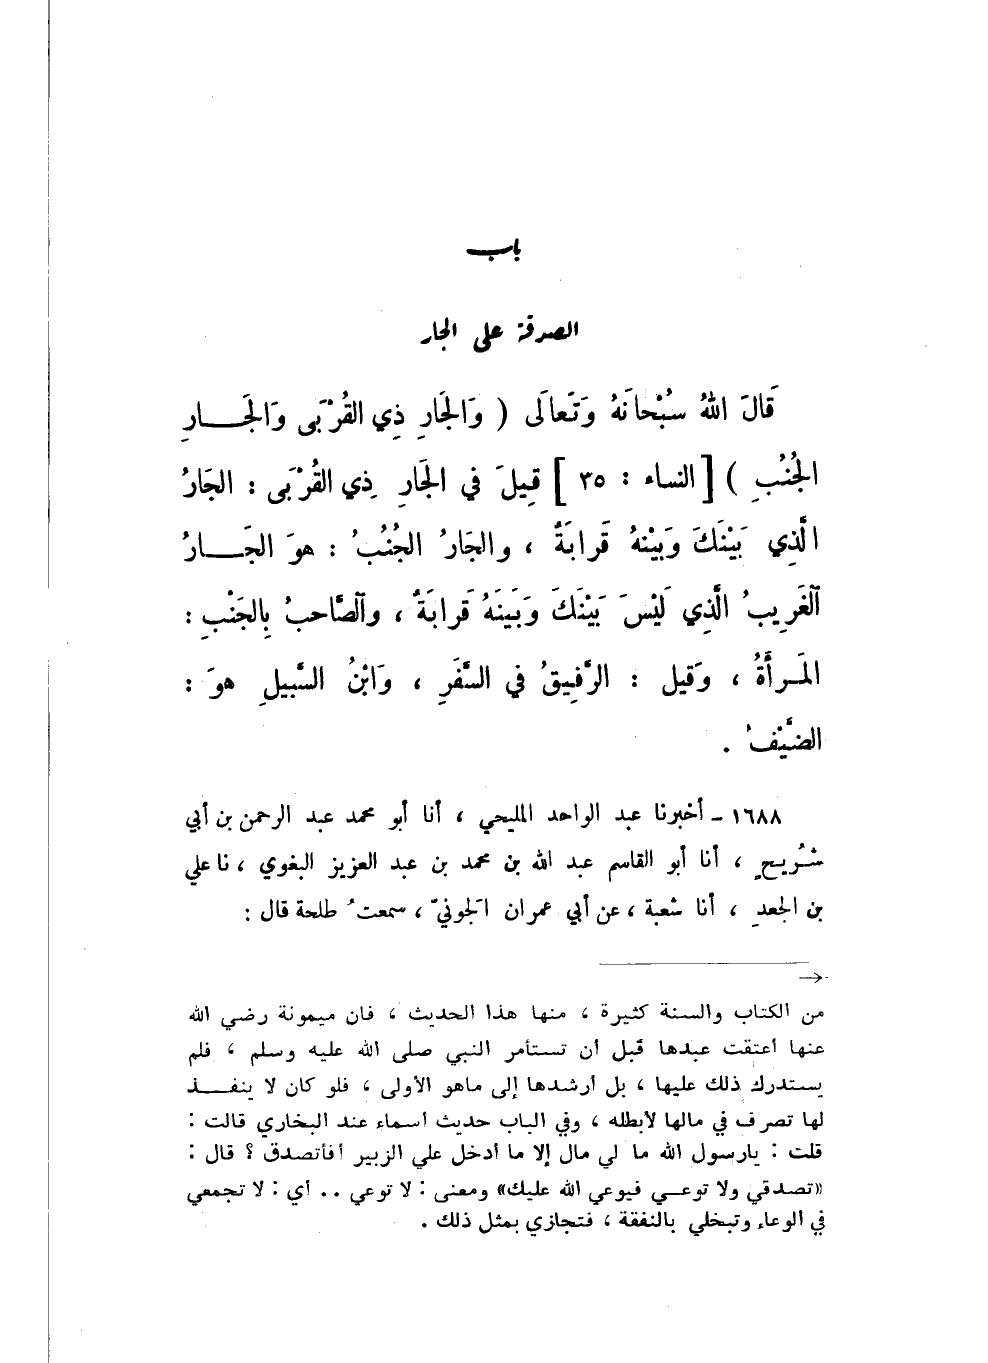 باب
الصدقة على الجار
قَالَ اللهُ سُبْحَانَهُ وَتَعَالَى ( وَالجَارِ ذِي القُرْبَى وَالجَـــارِ
الجُنُبِ ) [ النساء : ٣٥ ] قِيلَ في الجَارِ ذِي القُرْبَى : الجَارُ
الَّذِي بَيْنَكَ وَبَيْنهُ قَرابَةٌ ، والجَارُ الجُنُبُ : هوَ الجَـــارُ
ٱلْغَرِيبُ الَّذِي لَيْسَ بَيْنَكَ وَبَينَهُ قَرابَةٌ ، وٱلصَّاحبُ بِالجَنْبِ :
المَرأَةُ ، وَقيل : الرَّفِيقُ في السَّفَرِ ، وَابْنُ السَّبيلِ هوَ :
الضَّيْفُ .
١٦٨٨ ـ أخبرنا عبد الواحد المليحي ، أنا أبو محمد عبد الرحمن بن أبي
شُريحٍ ، أنا أبو القاسم عبد الله بن محمد بن عبد العزيز البغوي ، نا علي
بن الجعدِ ، أنا شعبة ، عن أبي عمران الجَونيّ ، سمعتُ طلحة قال :
→
من الكتاب والسنة كثيرة ، منها هذا الحديث ، فان ميمونة رضي الله
عنها أعتقت عبدها قبل أن تستأمر النبي صلى الله عليه وسلم ، فلم
يستدرك ذلك عليها ، بل أرشدها إلى ماهو الأولى ، فلو كان لا ينفـــذ
لها تصرف في مالها لأبطله ، وفي الباب حديث أسماء عند البخاري قالت :
قلت : يارسول الله ما لي مال إلا ما أدخل علي الزبير أفأتصدق ؟ قال :
«تصدقي ولا توعـي فيوعي الله عليك» ومعنى : لا توعي .. أي : لا تجمعي
في الوعاء وتبخلي بالنفقة ، فتجازي بمثل ذلك .